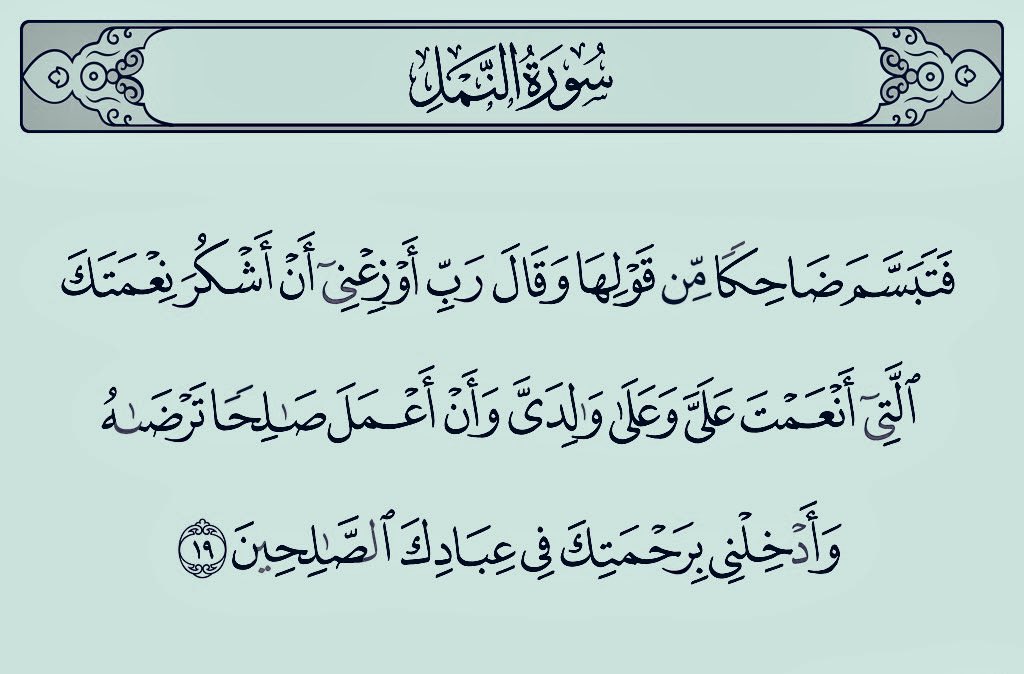 سُورَةُ النَّمْلِ
فَتَبَسَّمَ ضَاحِكًا مِّن قَوْلِهَا وَقَالَ رَبِّ أَوْزِعْنِىٓ أَنْ أَشْكُرَ نِعْمَتَكَ
ٱلَّتِىٓ أَنْعَمْتَ عَلَىَّ وَعَلَىٰ وَٰلِدَىَّ وَأَنْ أَعْمَلَ صَـٰلِحًا تَرْضَىٰهُ
وَأَدْخِلْنِى بِرَحْمَتِكَ فِى عِبَادِكَ ٱلصَّـٰلِحِينَ ١٩